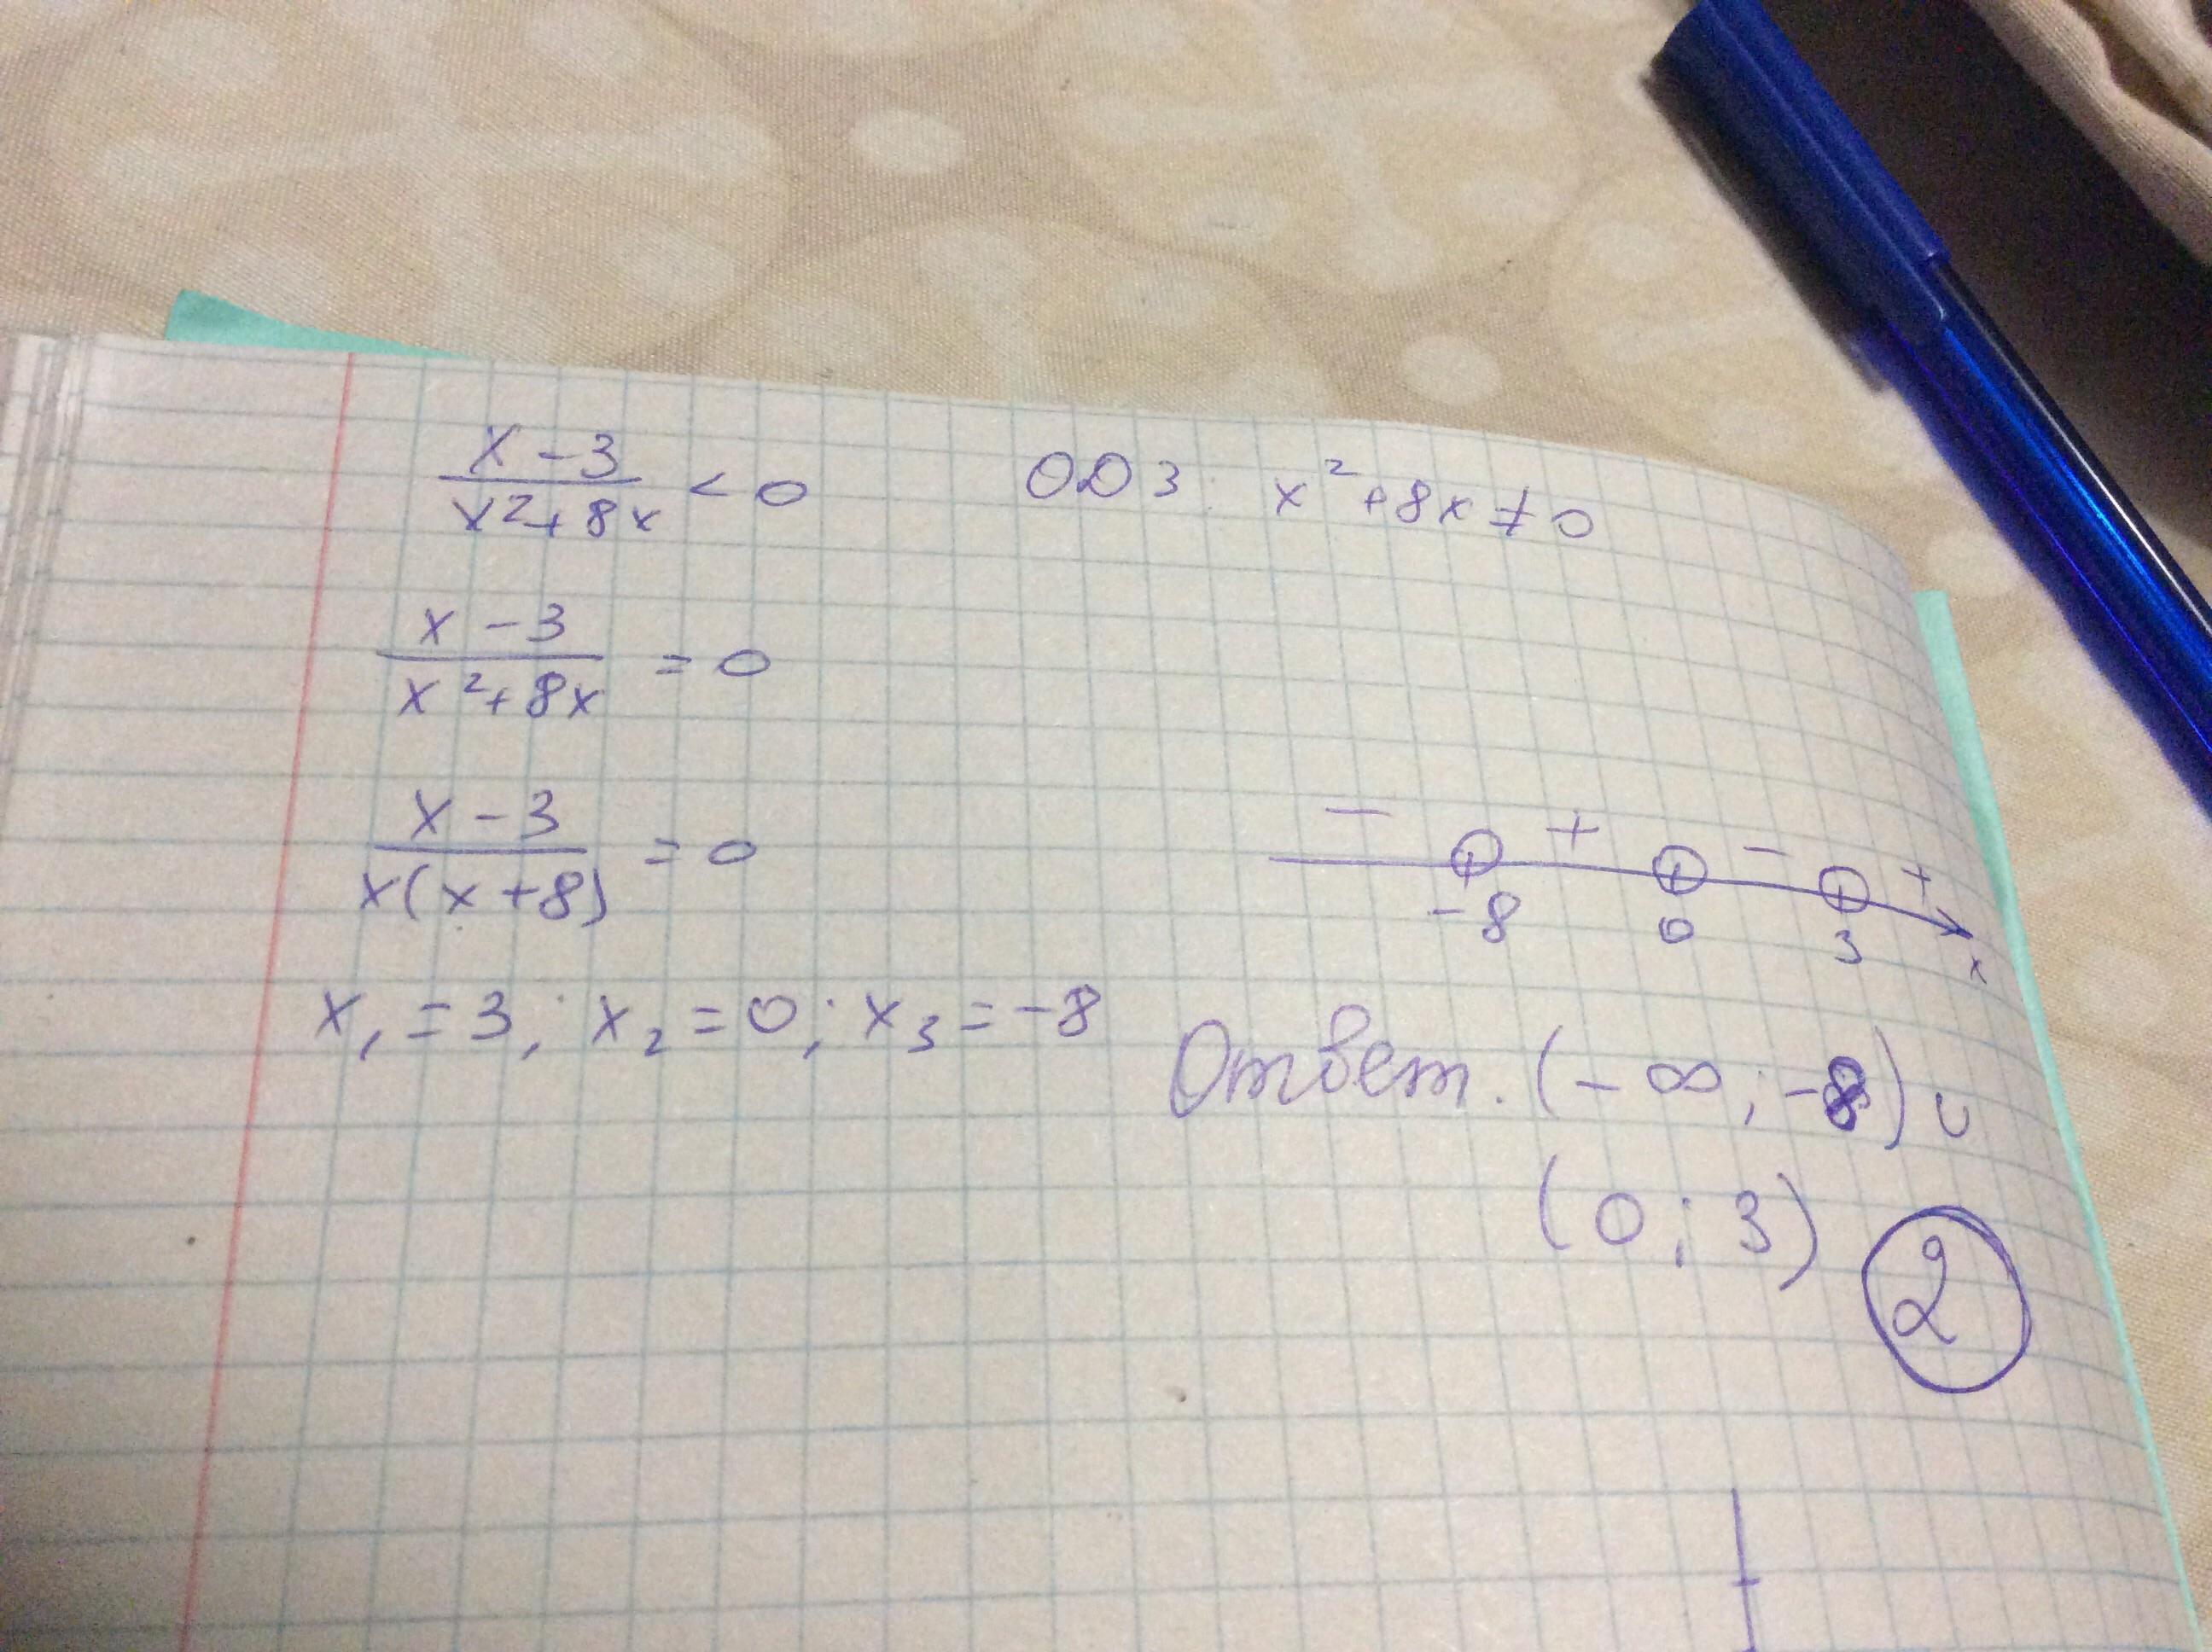 x - 3 / x² + 8x < 0 ОДЗ: x² + 8x ≠ 0
x - 3 / x² + 8x = 0
x - 3 / x(x + 8) = 0
- + - +
-8 0 3 x
x₁ = 3; x₂ = 0; x₃ = -8
Ответ. (-∞; -8) ∪
(0; 3)
2